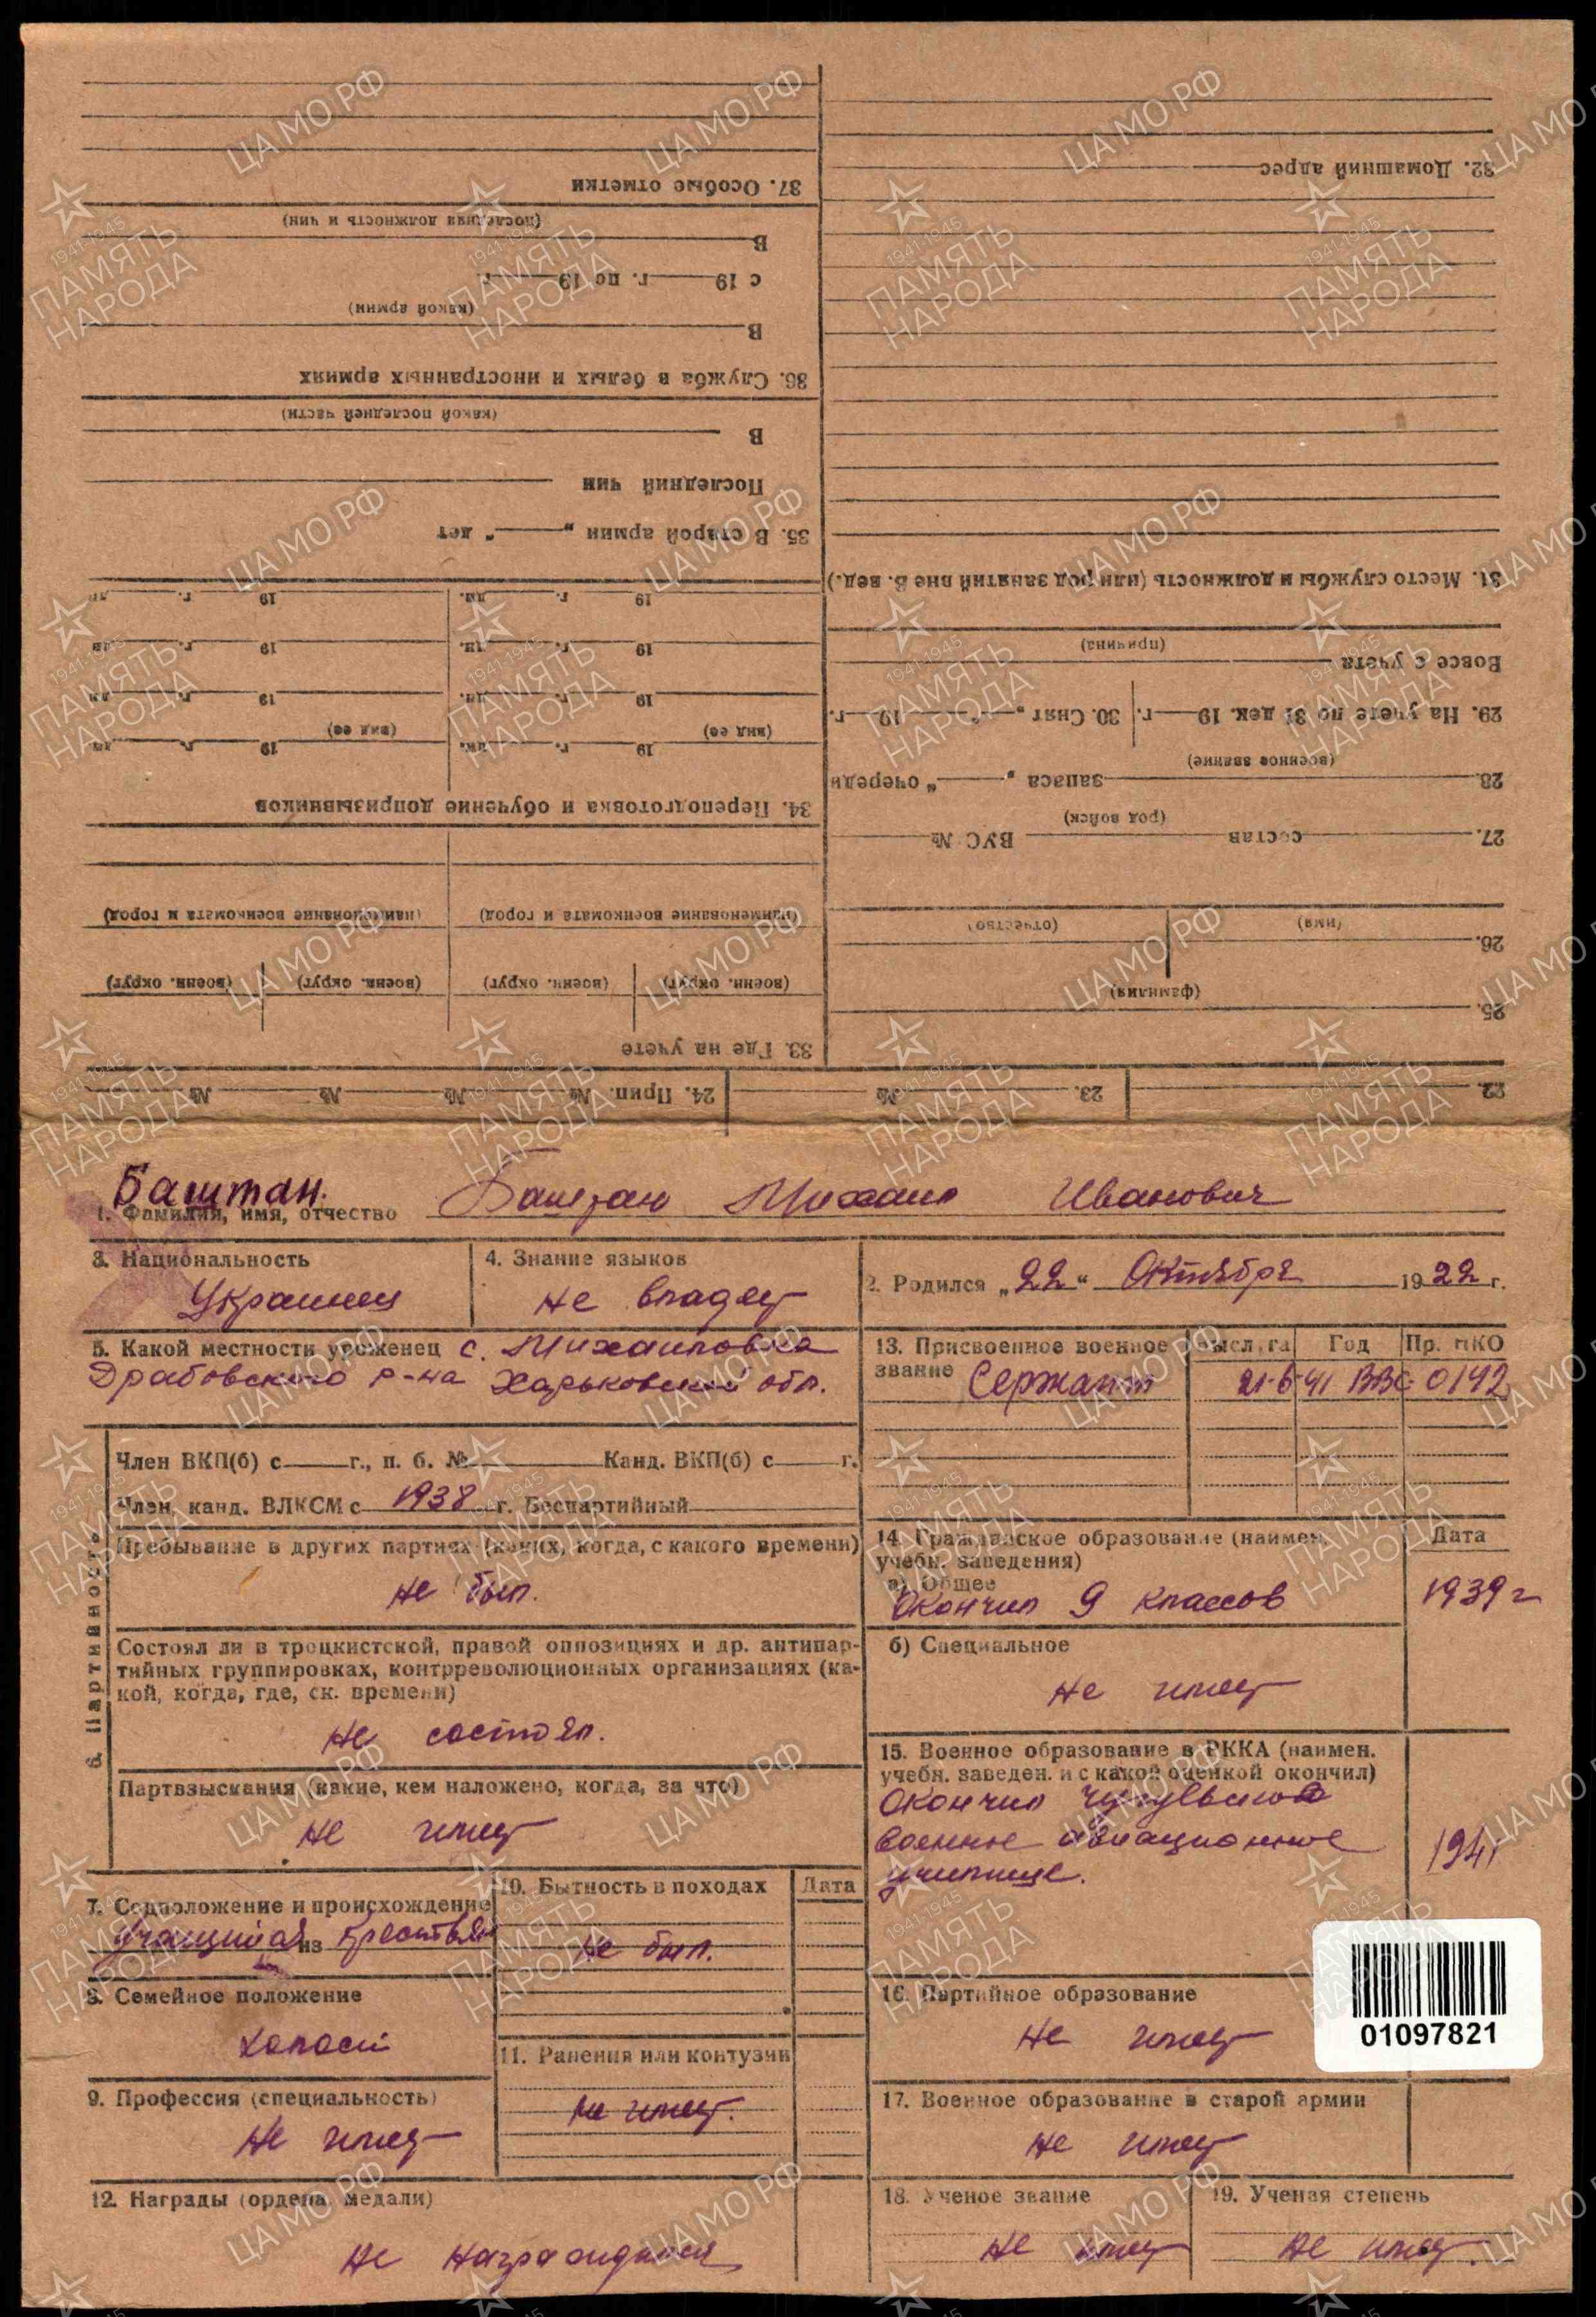 37. Особые отметки
(последняя должность и чин)
В
с 19 г. по 19 г.
(какой армии)
В
36. Служба в белых и иностранных армиях
(какой последней части)
В
Последний чин
35. В старой армии „ “ лет
19 г. дн. 19 г. дн
19 г. дн. 19 г. дн
19 г. дн. 19 г. дн
(вид ее) 19 г. дн. (вид ее) 19 г. дн
34. Переподготовка и обучение допризывников
(наименование военкомата и город) (наименование военкомата и город)
(военн. округ) (военн. округ) (военн. округ) (военн. округ)
33. Где на учете
32. Домашний адрес
31. Место службы и должность (или род занятий вне В. вед.)
(причина)
Вовсе с учета
29. На учете по 31 дек. 19 г. 30. Снят „ “ 19 г.
(военное звание)
28. запаса „ “ очереди
(род войск)
27. состав ВУС №
(имя) (отчество)
26.
(фамилия)
25.
22. 23. № 24. Прип. № № № №
Баштан.
1. Фамилия, имя, отчество Баштан Михаил Иванович
3. Национальность
Украинец
4. Знание языков
не владеет
2. Родился „22“ Октября 1922 г.
5. Какой местности уроженец с. Михайловка
Драбовского р-на Харьковской обл.
13. Присвоенное военное звание
Сержант
Год Пр. НКО
21·6·41 ВВС 0142
6. Партийность
Член ВКП(б) с г., п. б. № Канд. ВКП(б) с г.
Член, канд. ВЛКСМ с 1938 г. Беспартийный
Пребывание в других партиях (каких, когда, с какого времени)
не был.
Состоял ли в троцкистской, правой оппозициях и др. антипар-
тийных группировках, контрреволюционных организациях (ка-
кой, когда, где, ск. времени)
не состоял.
Партвзыскания (какие, кем наложено, когда, за что)
не имеет
14. Гражданское образование (наимен.
учебн. заведения)
Дата
а) Общее
Окончил 9 классов 1939 г
б) Специальное
не имеет
15. Военное образование в РККА (наимен.
учебн. заведен. и с какой оценкой окончил)
Окончил
военное авиационное
училище.
1941
7. Соцположение и происхождение
учащийся из крестьян
8. Семейное положение
холост
9. Профессия (специальность)
не имеет
10. Бытность в походах Дата
не был.
11. Ранения или контузии
не имеет.
12. Награды (ордена, медали)
не награждался
16. Партийное образование
не имеет
17. Военное образование в старой армии
не имеет
18. Ученое звание
не имеет
19. Ученая степень
не имеет.
01097821
ЦА МО РФ
1941-1945
ПАМЯТЬ
НАРОДА